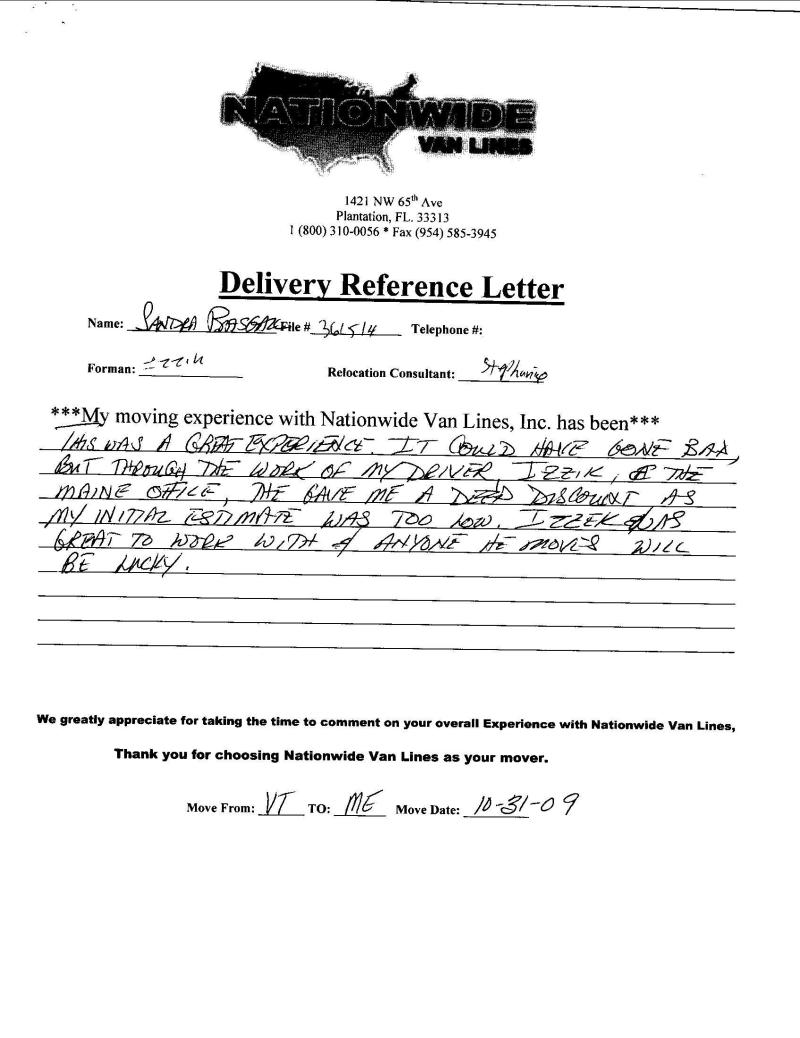 NATIONWIDE
VAN LINES
1421 NW 65th Ave
Plantation, FL. 33313
1 (800) 310-0056 * Fax (954) 585-3945
Delivery Reference Letter
Name: SANDRA File # 361514 Telephone #:
Forman: Izzik Relocation Consultant:
***My moving experience with Nationwide Van Lines, Inc. has been***
THIS WAS A GREAT EXPERIENCE. IT COULD HAVE GONE BAD,
BUT THROUGH THE WORK OF MY DRIVER, IZZIK, & THE
MAINE OFFICE, HE GAVE ME A DEEP DISCOUNT AS
MY INITIAL ESTIMATE WAS TOO LOW. IZZEK WAS
GREAT TO WORK WITH & ANYONE HE MOVES WILL
BE LUCKY.
We greatly appreciate for taking the time to comment on your overall Experience with Nationwide Van Lines,
Thank you for choosing Nationwide Van Lines as your mover.
Move From: VT TO: ME Move Date: 10-31-09